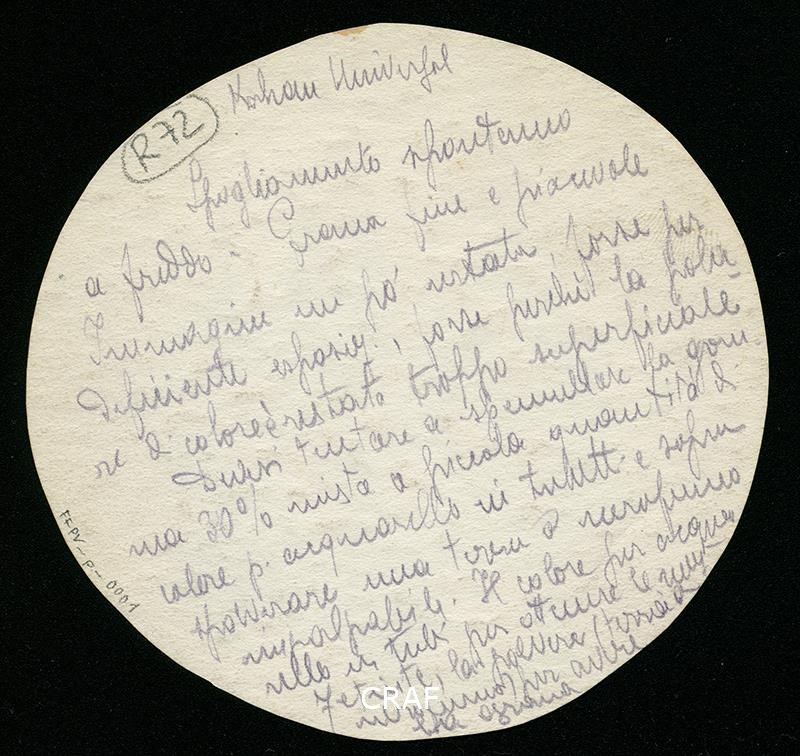 R 72
Kohan Universal
Spogliamento spontaneo
a freddo - Grana fine e piacevole
Immagine un pò restata, forse per
deficiente esposiz., forse perché la polve
re di colore è restata troppo superficiale
Devesi tentare a spennellare la gom-
ma 30% mista a piccola quantità di
colore p. acquarello in tubett. e sopra
spolverare una terra o nerofumo
impalpabili. Il colore per acqua
rello in tubi per ottenere le mezz
la polvere (terra o
nerofumo) per avere
la grana
FFPV-P-0001
CRAF